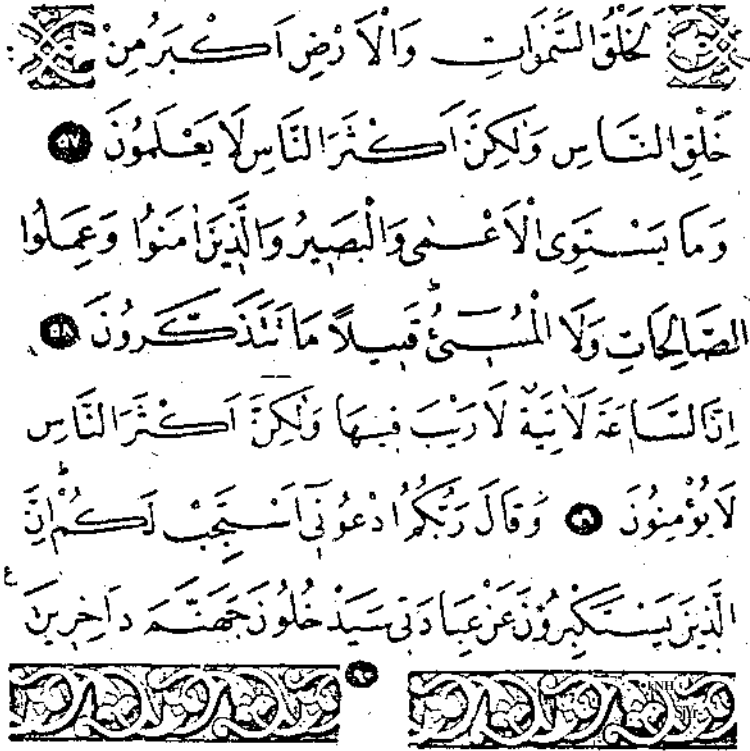 لَخَلْقُ السَّمٰوَاتِ وَالْاَرْضِ اَكْبَرُ مِنْ
خَلْقِ النَّاسِ وَلٰكِنَّ اَكْثَرَ النَّاسِ لَا يَعْلَمُونَ ٥٧
وَمَا يَسْتَوِى الْاَعْمٰى وَالْبَصِيرُ وَالَّذِينَ اٰمَنُوا وَعَمِلُوا
الصَّالِحَاتِ وَلَا الْمُسِىءُ قَلِيلًا مَا تَتَذَكَّرُونَ ٥٨
اِنَّ السَّاعَةَ لَاٰتِيَةٌ لَا رَيْبَ فِيهَا وَلٰكِنَّ اَكْثَرَ النَّاسِ
لَا يُؤْمِنُونَ ٥٩ وَقَالَ رَبُّكُمُ ادْعُونِٓى اَسْتَجِبْ لَكُمْ اِنَّ
الَّذِينَ يَسْتَكْبِرُونَ عَنْ عِبَادَتِى سَيَدْخُلُونَ جَهَنَّمَ دَاخِرِينَ
٦٠
ع